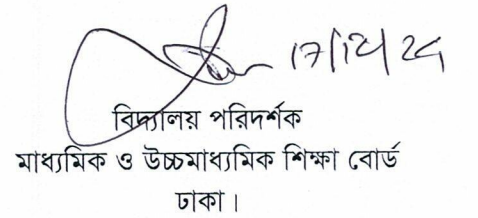 17/12/24
বিদ্যালয় পরিদর্শক
মাধ্যমিক ও উচ্চমাধ্যমিক শিক্ষা বোর্ড
ঢাকা।